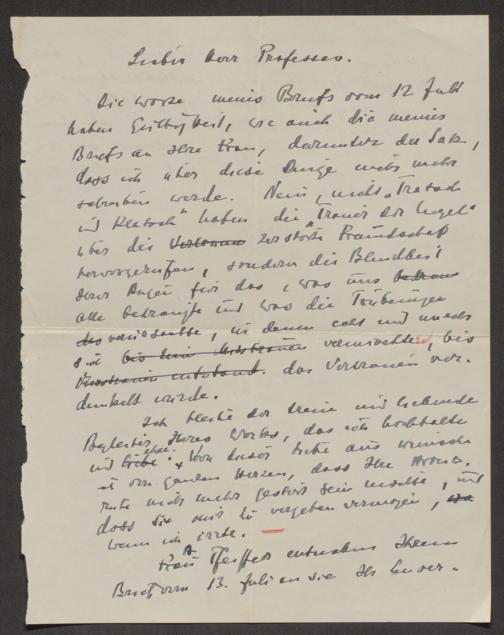 Lieber Herr Professor.
Die Worte meines Briefs vom 12 Juli
haben Gültigkeit, wie auch die meines
Briefs an Ihre Frau, darunter der Satz,
dass ich über diese Dinge nichts mehr
schreiben werde. Nein, nicht "Tratsch
und Klatsch" haben die "Trauer der Engel"
über die Verlorene zerstörte Freundschaft
hervorgerufen, sondern die Blindheit
Ihrer Augen für das, was uns
alle bedrängte und was die Trübungen
verursachte, in denen echt und unecht
s bis ein Misstrauen vermischte, bis
Misstrauen entstand. das Vertrauen ver-
dunkelt wurde.
Ich bleibe der treue und liebende
Begleiter Ihres Werkes, das ich hochhalte
und liebe. Von dieser Seite aus wünsche
ich von ganzem Herzen, dass Ihre Arbeits-
ruhe nicht mehr gestört sein möchte, und
dass Sie mir zu vergeben vermögen,
wenn ich irrte.
Frau Pfeiffer entnahm Ihrem
Brief vom 13. Juli an sie Ihr